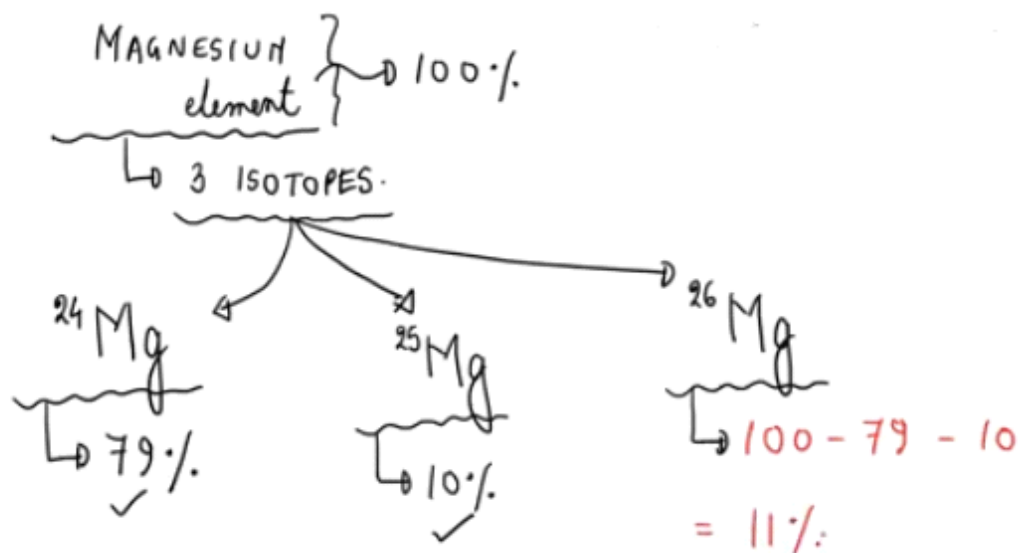 MAGNESIUM
element
100%
3 ISOTOPES.
24Mg
25Mg
26Mg
79%
10%
100 - 79 - 10
= 11%